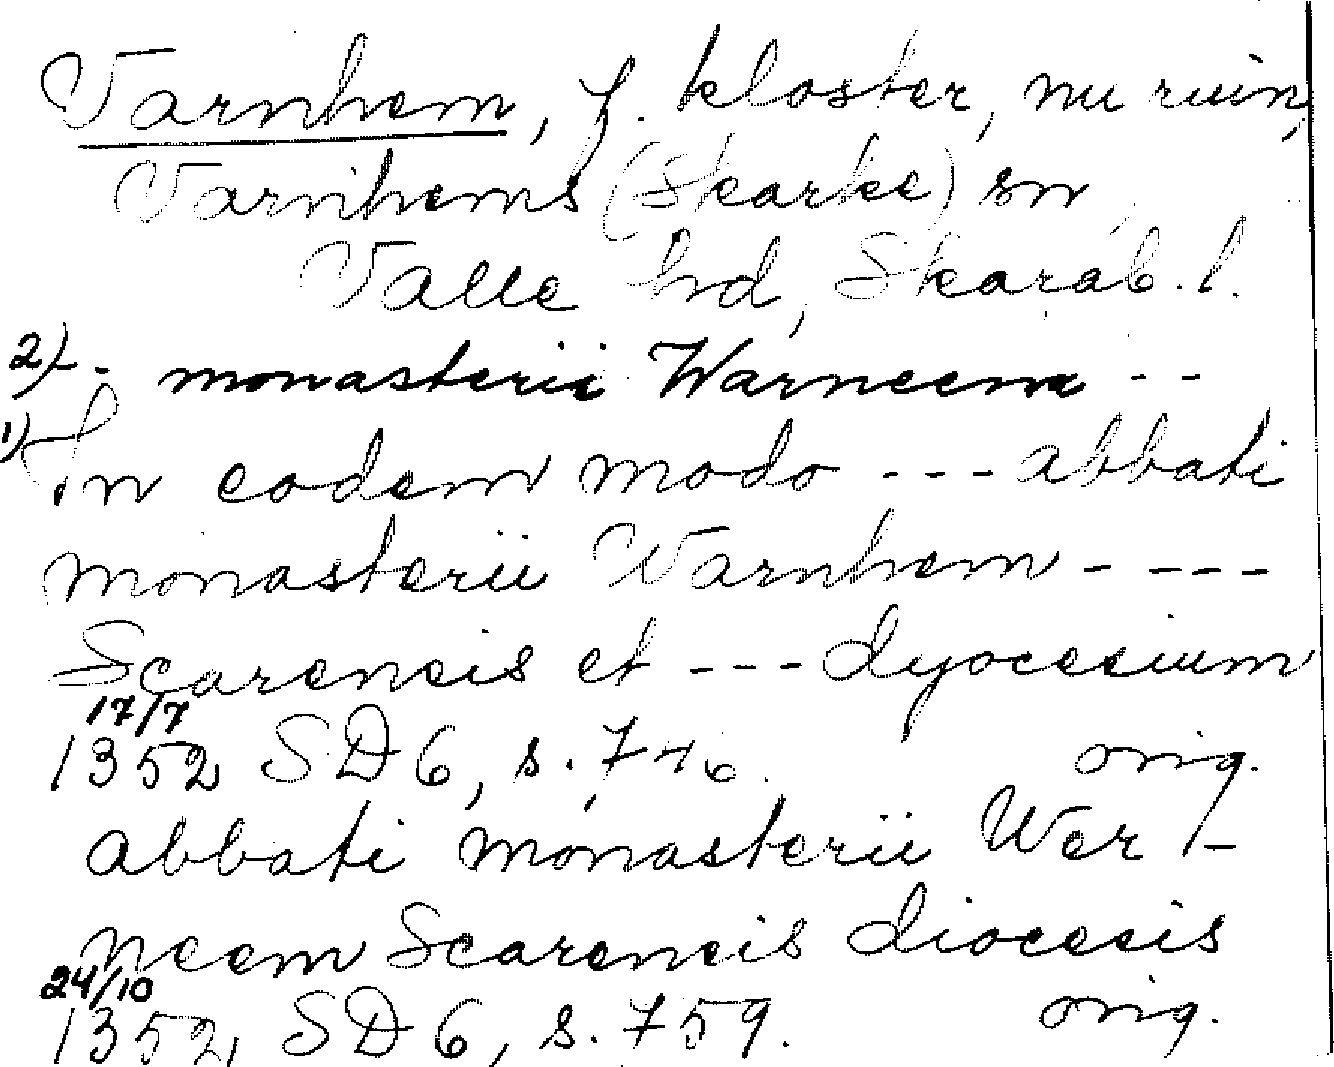 Varnhem, f. kloster, nu ruin,
Varnhems (Skarke) sn,
Valle hd, Skarab. l.
2) - - monasterii Warneem - -
1) In eodem modo - - - abbati
monasterii Warnhem - - - -
Scarencis et - - - dyocesium
17/7
1352 SD 6, s. 746. orig.
abbati monasterii Wer /-
neem Scarencis diocesis
24/10
1352, SD 6, s. 759. orig.